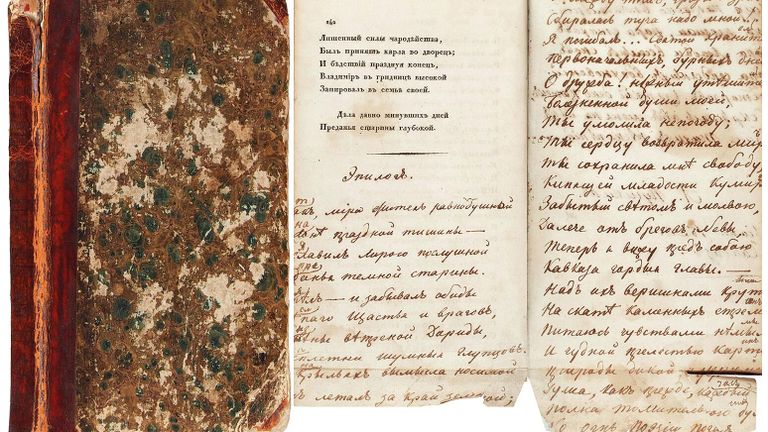 142
Лишенный силы чародѣйства,
Былъ принятъ карла во дворецъ;
И бѣдствій празднуя конецъ,
Владиміръ въ гридницѣ высокой
Запировалъ въ семьѣ своей.
Дѣла давно минувшихъ дней
Преданья старины глубокой.
Эпилогъ.
акъ, міра житель равнодушный
лонѣ праздной тишины —
славилъ лирою послушной
темной старины.
пѣлъ — и забывалъ обиды
щастья и враговъ,
вѣтреной Дориды,
сплетни шумныя глупцовъ.
крыльяхъ вымысла носимой
леталъ за край земной;
Сбиралась туча надо мной!..
Я погибалъ... Святой хранитель
первоначальныхъ, бурныхъ дней
О дружба! нѣжный утѣшитель
болѣзненной души моей,
Ты умолила непогоду;
Ты сердцу возвратила миръ
Ты сохранила мнѣ свободу,
Кипящей младости кумиръ
Забытый свѣтомъ и молвою,
Далече отъ бреговъ Невы
Теперь я вижу предъ собою
Кавказа гордыя главы. —
Надъ ихъ вершинами крут
На скатѣ каменныхъ стрем
Питаюсь чувствами нѣмы
И чудной прелестью карт
природы дикой
душа, какъ прежде, каждый
часъ
полна томительною ду
Но огнь поэзіи погасъ